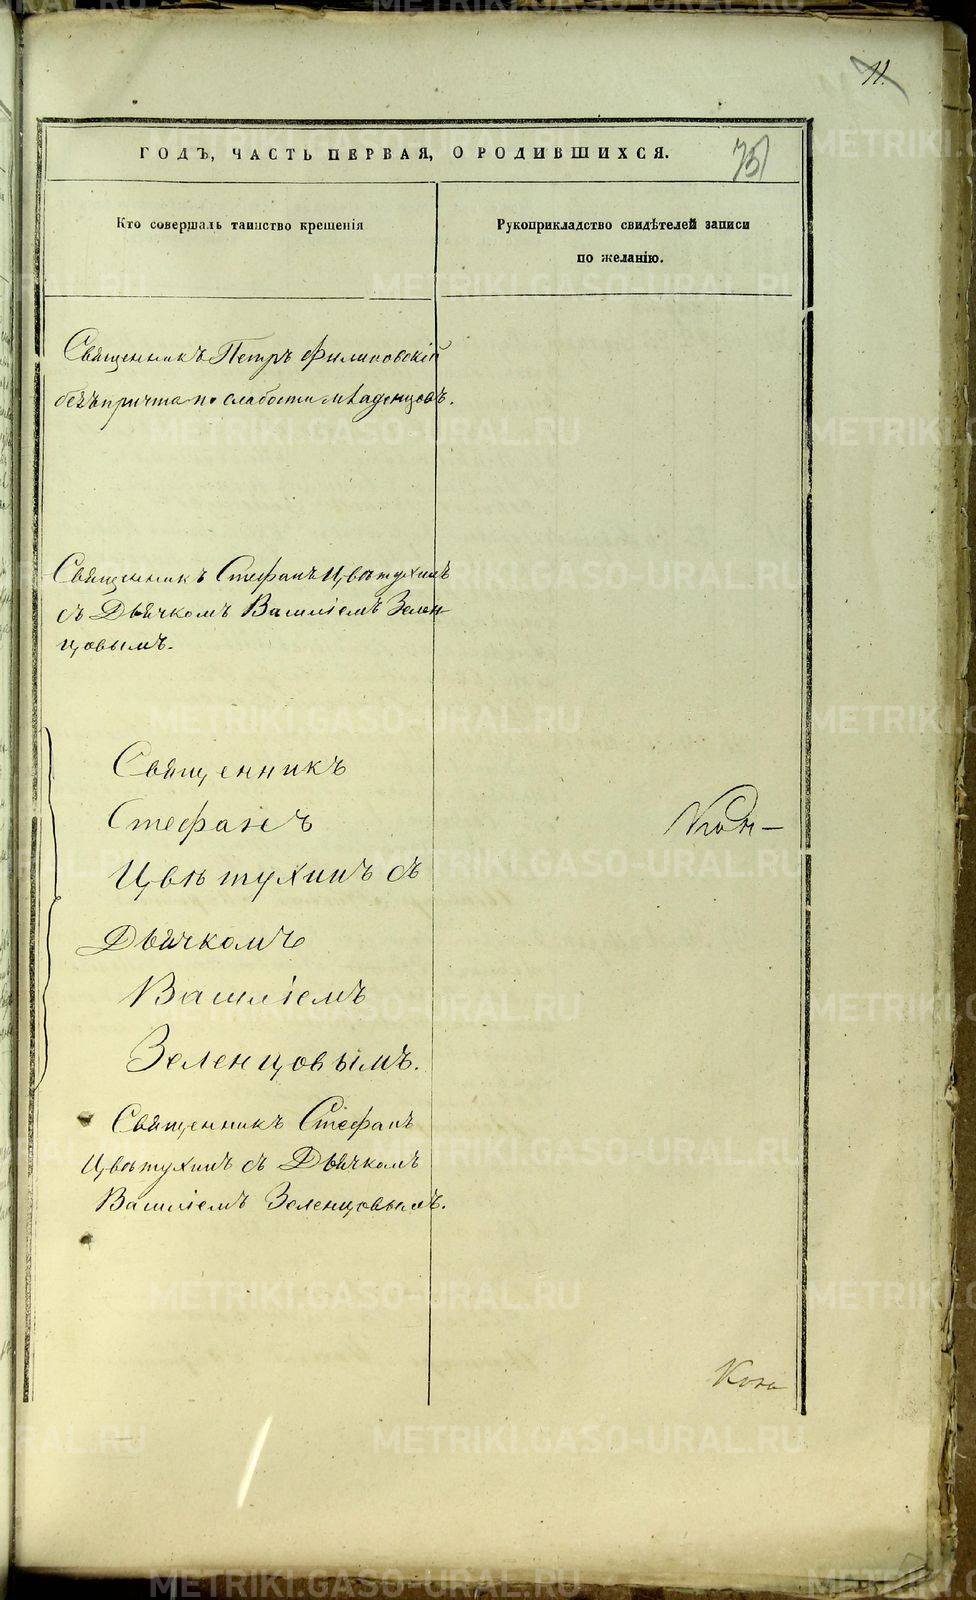 11.
ГОДЪ, ЧАСТЬ ПЕРВАЯ, О РОДИВШИХСЯ.
Кто совершалъ таинство крещенія
Рукоприкладство свидѣтелей записи
по желанію.
Священникъ Петръ Филиповскій
безъ причта по слабости младенцовъ.
Священникъ Стефанъ Цвѣтухинъ
съ Дьячкомъ Василіемъ Зелен-
цовымъ.
Священникъ
Стефанъ
Цвѣтухинъ съ
Дьячкомъ
Василіемъ
Зеленцовымъ.
Священникъ Стефанъ
Цвѣтухинъ съ Дьячкомъ
Василіемъ Зеленцовымъ.
METRIKI.GASO-URAL.RU